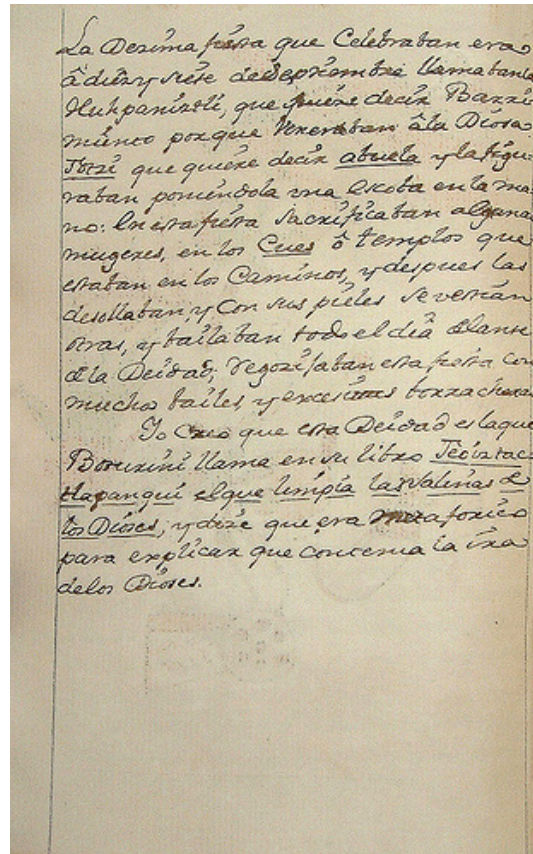 La Dezima fiesta que Celebraban era
â diez y siete de Septiembre llamabanla
Huhpaniztli, que quiere decir Barri
miento porque Veneraban â la Diosa
Totzi que quiere decir abuela y la figu-
raban poniendola una escoba en la ma
no: En esta fiesta Sacrificaban algunas
mugeres, en los Cues ô templos que
estaban en los Caminos, y despues las
desollaban, y Con sus pieles se vestian
otras, y bailaban todo el diâ delante
de la Deidad; Regozijaban esta fiesta con
muchos bailes, y excesivas borracheras
Yo Creo que esta Deidad es la que
Boturini llama en su libro
tlapanqui el que limpia las de
los Dioses, y dize que era metaforico
para explicar que contenia la ira
de los Dioses.